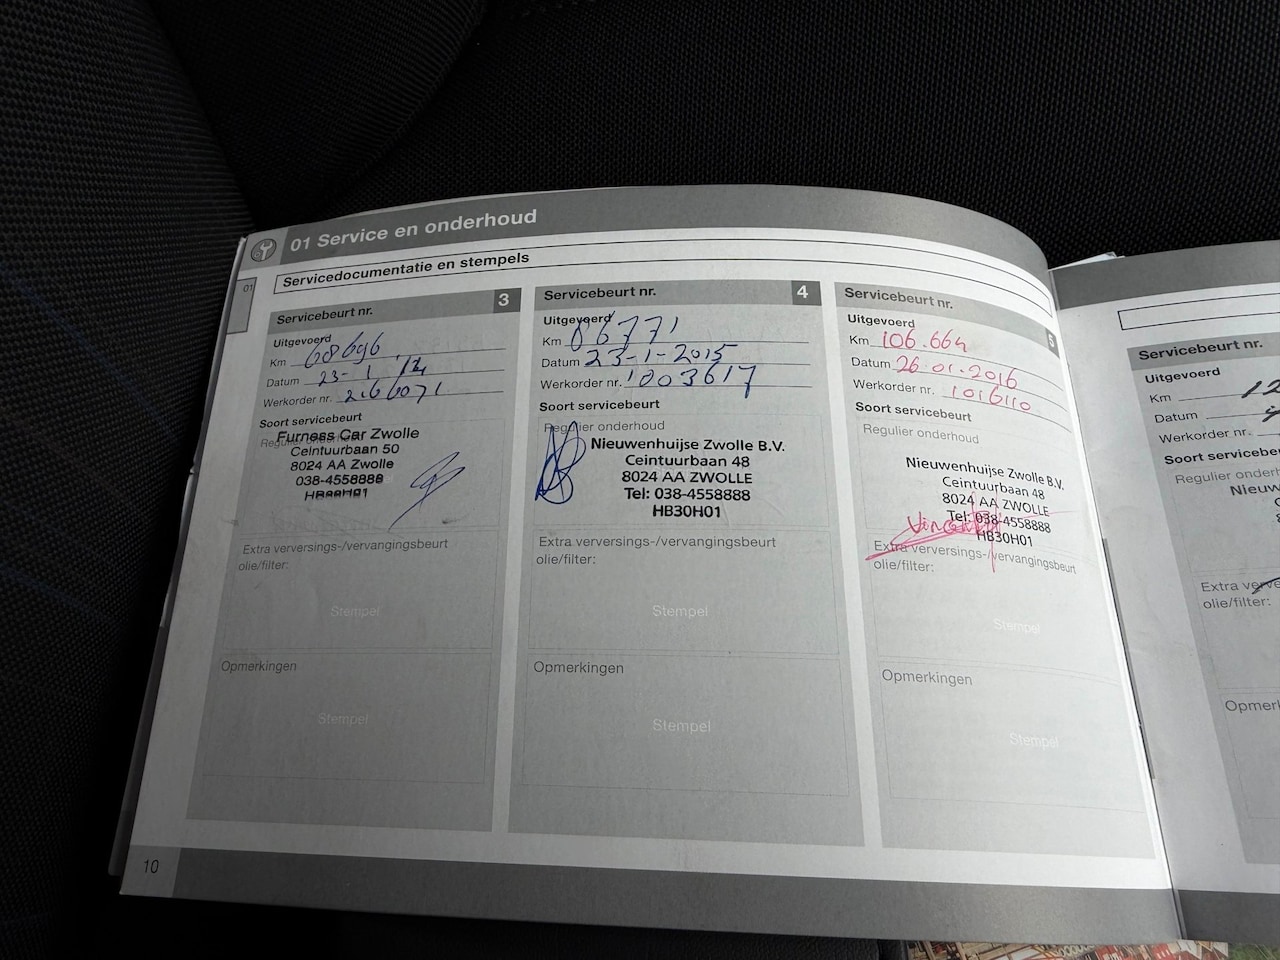 01 Service en onderhoud
01
Servicedocumentatie en stempels
Servicebeurt nr. 3
Uitgevoerd
Km 68696
Datum 23-1-14
Werkorder nr. 266071
Soort servicebeurt
Regulier onderhoud
Furness Car Zwolle
Ceintuurbaan 50
8024 AA Zwolle
038-4558888
Extra verversings-/vervangingsbeurt
olie/filter:
Stempel
Opmerkingen
Stempel
10
Servicebeurt nr. 4
Uitgevoerd
Km 86771
Datum 23-1-2015
Werkorder nr. 1003617
Soort servicebeurt
Regulier onderhoud
Nieuwenhuijse Zwolle B.V.
Ceintuurbaan 48
8024 AA ZWOLLE
Tel: 038-4558888
HB30H01
Extra verversings-/vervangingsbeurt
olie/filter:
Stempel
Opmerkingen
Stempel
Servicebeurt nr. 5
Uitgevoerd
Km 106.664
Datum 26.01.2016
Werkorder nr. 1016110
Soort servicebeurt
Regulier onderhoud
Nieuwenhuijse Zwolle B.V.
Ceintuurbaan 48
8024 AA ZWOLLE
Tel: 038-4558888
HB30H01
Extra verversings-/vervangingsbeurt
olie/filter:
Stempel
Opmerkingen
Stempel
Servicebeurt nr.
Uitgevoerd
Km 12
Datum
Werkorder nr.
Soort servicebeu
Regulier onderh
Nieuw
Extra verve
olie/filter:
Opmerk